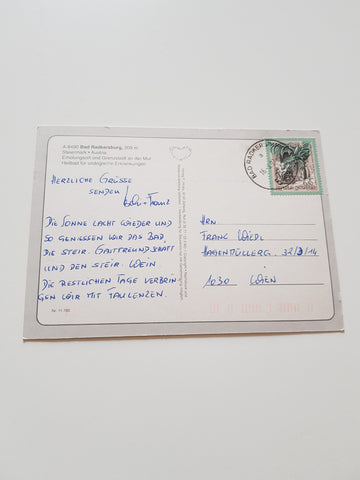 A-8490 Bad Radkersburg, 209 m
Steiermark • Austria
Erholungsort und Grenzstadt an der Mur
Heilbad für urologische Erkrankungen
HERZLICHE GRÜSSE
SENDEN
DIE SONNE LACHT WIEDER UND
SO GENIESSEN WIR DAS BAD,
DIE STEIR. GASTFREUNDSCHAFT
UND DEN STEIR. WEIN
DIE RESTLICHEN TAGE VERBRIN
GEN WIR MIT FAULENZEN.
Nr. 11 760
BAD RADKERSBURG
HRN.
FRANC WIEDL
HAGENMÜLLERG. 32/3/14
1030 WIEN